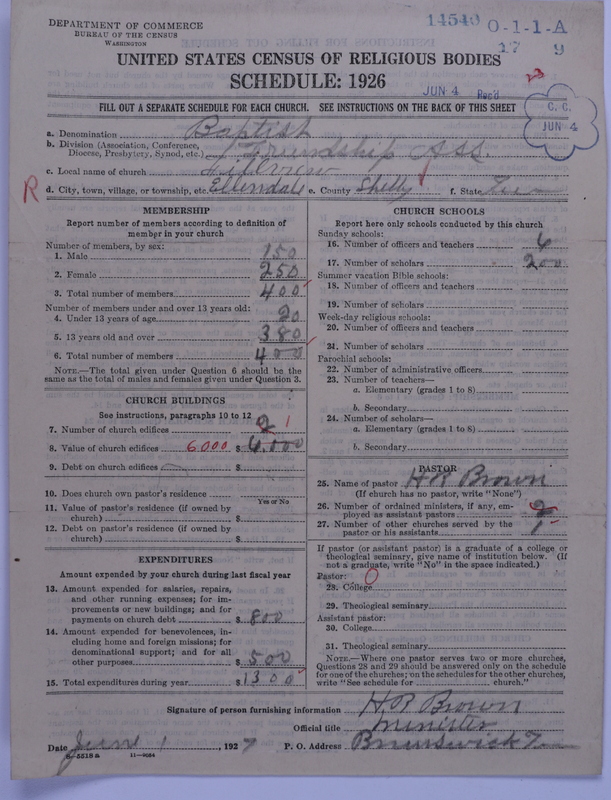 DEPARTMENT OF COMMERCE
BUREAU OF THE CENSUS
WASHINGTON
14540 O-1-1-A
17 9
UNITED STATES CENSUS OF RELIGIOUS BODIES
SCHEDULE: 1926
JUN 4 Rec'd
C. C.
JUN 4
FILL OUT A SEPARATE SCHEDULE FOR EACH CHURCH. SEE INSTRUCTIONS ON THE BACK OF THIS SHEET
a. Denomination Baptist
b. Division (Association, Conference, Diocese, Presbytery, Synod, etc.) Friendship Ass.
c. Local name of church
R
d. City, town, village, or township, etc. Ellendale e. County Shelby f. State
MEMBERSHIP
Report number of members according to definition of member in your church
Number of members, by sex:
1. Male 150
2. Female 250
3. Total number of members 400
Number of members under and over 13 years old:
4. Under 13 years of age 20
5. 13 years old and over 380
6. Total number of members 400
NOTE.—The total given under Question 6 should be the same as the total of males and females given under Question 3.
CHURCH BUILDINGS
See instructions, paragraphs 10 to 12
7. Number of church edifices 2 1
8. Value of church edifices 6000 $ 6,000
9. Debt on church edifices
10. Does church own pastor's residence
Yes or No
11. Value of pastor's residence (if owned by church) $
12. Debt on pastor's residence (if owned by church) $
EXPENDITURES
Amount expended by your church during last fiscal year
13. Amount expended for salaries, repairs, and other running expenses; for improvements or new buildings; and for payments on church debt $ 800
14. Amount expended for benevolences, including home and foreign missions; for denominational support; and for all other purposes $ 500
15. Total expenditures during year $ 1300
CHURCH SCHOOLS
Report here only schools conducted by this church
Sunday schools:
16. Number of officers and teachers 6
17. Number of scholars 200
Summer vacation Bible schools:
18. Number of officers and teachers
19. Number of scholars
Week-day religious schools:
20. Number of officers and teachers
21. Number of scholars
Parochial schools:
22. Number of administrative officers
23. Number of teachers—
a. Elementary (grades 1 to 8)
b. Secondary
24. Number of scholars—
a. Elementary (grades 1 to 8)
b. Secondary
PASTOR
25. Name of pastor H R Brown
(If church has no pastor, write "None")
26. Number of ordained ministers, if any, employed as assistant pastors 2
27. Number of other churches served by the pastor or his assistants 1
If pastor (or assistant pastor) is a graduate of a college or theological seminary, give name of institution below. (If not a graduate, write "No" in the space indicated.)
Pastor: O
28. College
29. Theological seminary
Assistant pastor:
30. College
31. Theological seminary
NOTE.—Where one pastor serves two or more churches, Questions 28 and 29 should be answered only on the schedule for one of the churches; on the schedules for the other churches, write "See schedule for church."
Signature of person furnishing information H. R Brown
Official title Minister
Date June 1, 1927 P. O. Address Brunswick T
8—5518 a 11—9084